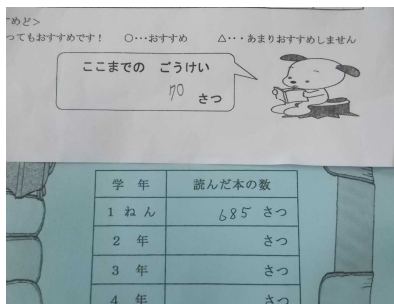 すめど>
ってもおすすめです！ ○・・・おすすめ △・・・あまりおすすめしません
ここまでの ごうけい
70 さつ
学 年 読んだ本の数
1 ね ん 685 さつ
2 年 さつ
3 年 さつ
4 年 さつ